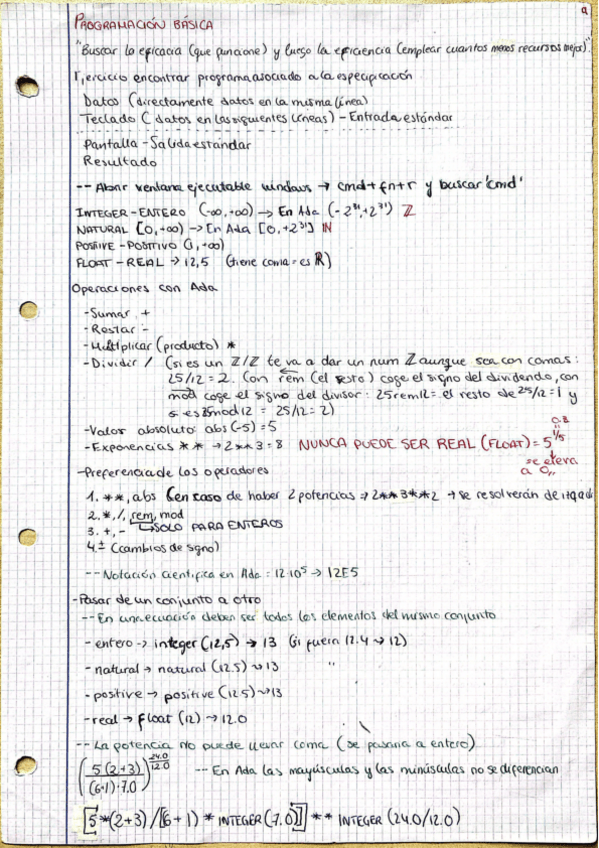 PROGRAMACIÓN BÁSICA
"Buscar la eficacia (que funcione) y luego la eficiencia (emplear cuantos menos recursos mejor)".
Ejercicio encontrar programa asociado a la especificación
Datos (directamente datos en la misma línea)
Teclado (datos en las siguientes líneas) - Entrada estándar
Pantalla - Salida estándar
Resultado
-- Abrir ventana ejecutable windows → cmd+fn+r y buscar 'cmd'
INTEGER - ENTERO (-∞,+∞) → En Ada (-2^31,+2^31) ℤ
NATURAL [0,+∞) → En Ada [0,+2^31] ℕ
POSITIVE - POSITIVO (1,+∞)
FLOAT - REAL → 12,5 (tiene coma = es ℝ)
Operaciones con Ada
- Sumar +
- Restar -
- Multiplicar (producto) *
- Dividir / (si es un ℤ/ℤ te va a dar un num ℤ aunque sea con comas:
25/12 = 2. Con rem (el resto) coge el signo del dividendo, con
mod coge el signo del divisor: 25rem12 = el resto de 25/12 = 1 y
si es 25mod12 = 25/12 = 2)
- Valor absoluto: abs(-5) = 5
- Exponencias ** → 2**3 = 8 NUNCA PUEDE SER REAL (FLOAT) = 5^1/5
se eleva
a 0,,
- Preferencia de los operadores
1. **, abs (en caso de haber 2 potencias → 2**3**2 → se resolverán de
2. *, /, rem, mod
3. +, - ↳ SOLO PARA ENTEROS
4. ± (cambios de signo)
-- Notación científica en Ada: 12·10^5 → 12E5
- Pasar de un conjunto a otro
-- En una ecuación deben ser todos los elementos del mismo conjunto
- entero → integer (12,5) → 13 (si fuera 12.4 → 12)
- natural → natural (12.5) → 13 "
- positive → positive (12.5) → 13
- real → float (12) → 12.0
-- La potencia no puede llevar coma (se pasaría a entero)
(5(2+3)/(6·1)·7.0)^24.0/12.0 -- En Ada las mayúsculas y las minúsculas no se diferencian
[5*(2+3)/[(6+1)*INTEGER(-7.0)]]**INTEGER (24.0/12.0)